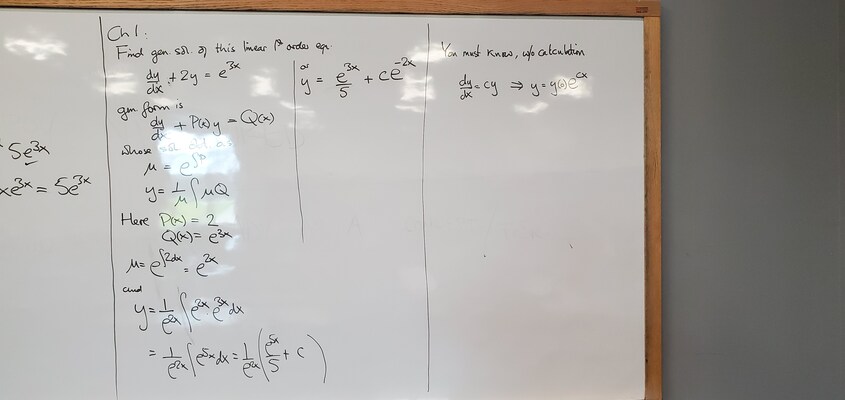 5e^3x
xe^3x = 5e^3x
Ch 1.
Find gen. sol. of this linear 1st order eqn.
dy/dx + 2y = e^3x
gen. form is
dy/dx + P(x) y = Q(x)
whose
μ = e^∫P
y = 1/μ ∫ μQ
Here P(x) = 2
Q(x) = e^3x
μ = e^∫2dx = e^2x
and
y = 1/e^2x ∫ e^2x · e^3x dx
= 1/e^2x ∫ e^5x dx = 1/e^2x ( e^5x/5 + c )
or
y = e^3x/5 + ce^-2x
You must know, w/o calculation
dy/dx = cy ⇒ y = y(0)e^cx